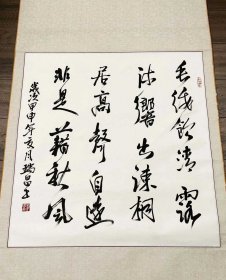 垂緌飲清露
流響出疎桐
居高聲自遠
非是藉秋風
歲次甲申年亥月